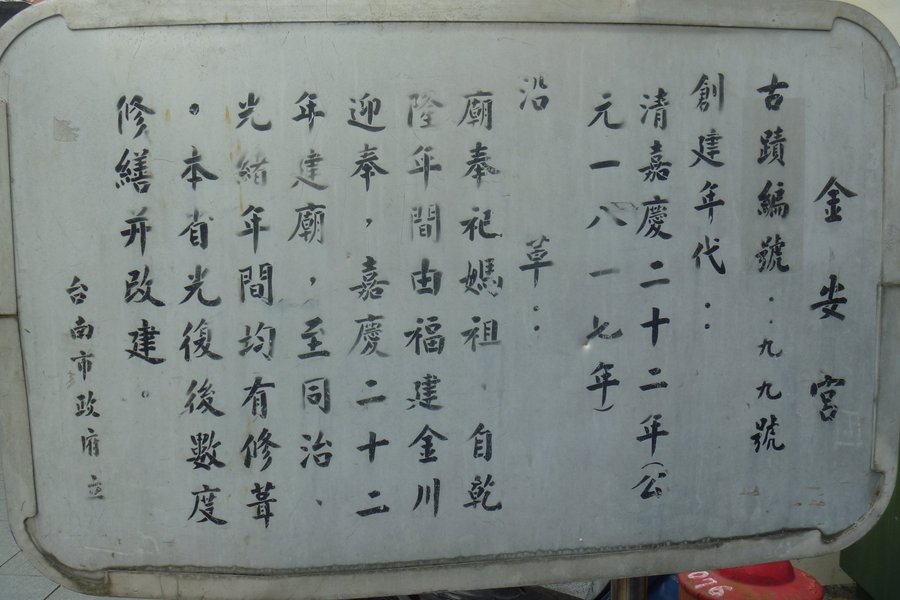 金安宮
古蹟編號：九九號
創建年代：
清嘉慶二十二年(公
元一八一七年)
沿草：
廟奉祀媽祖，自乾
隆年間由福建金川
迎奉，嘉慶二十二
年建廟，至同治、
光緒年間均有修葺
。本省光復後數度
修繕并改建。
台南市政府立
076